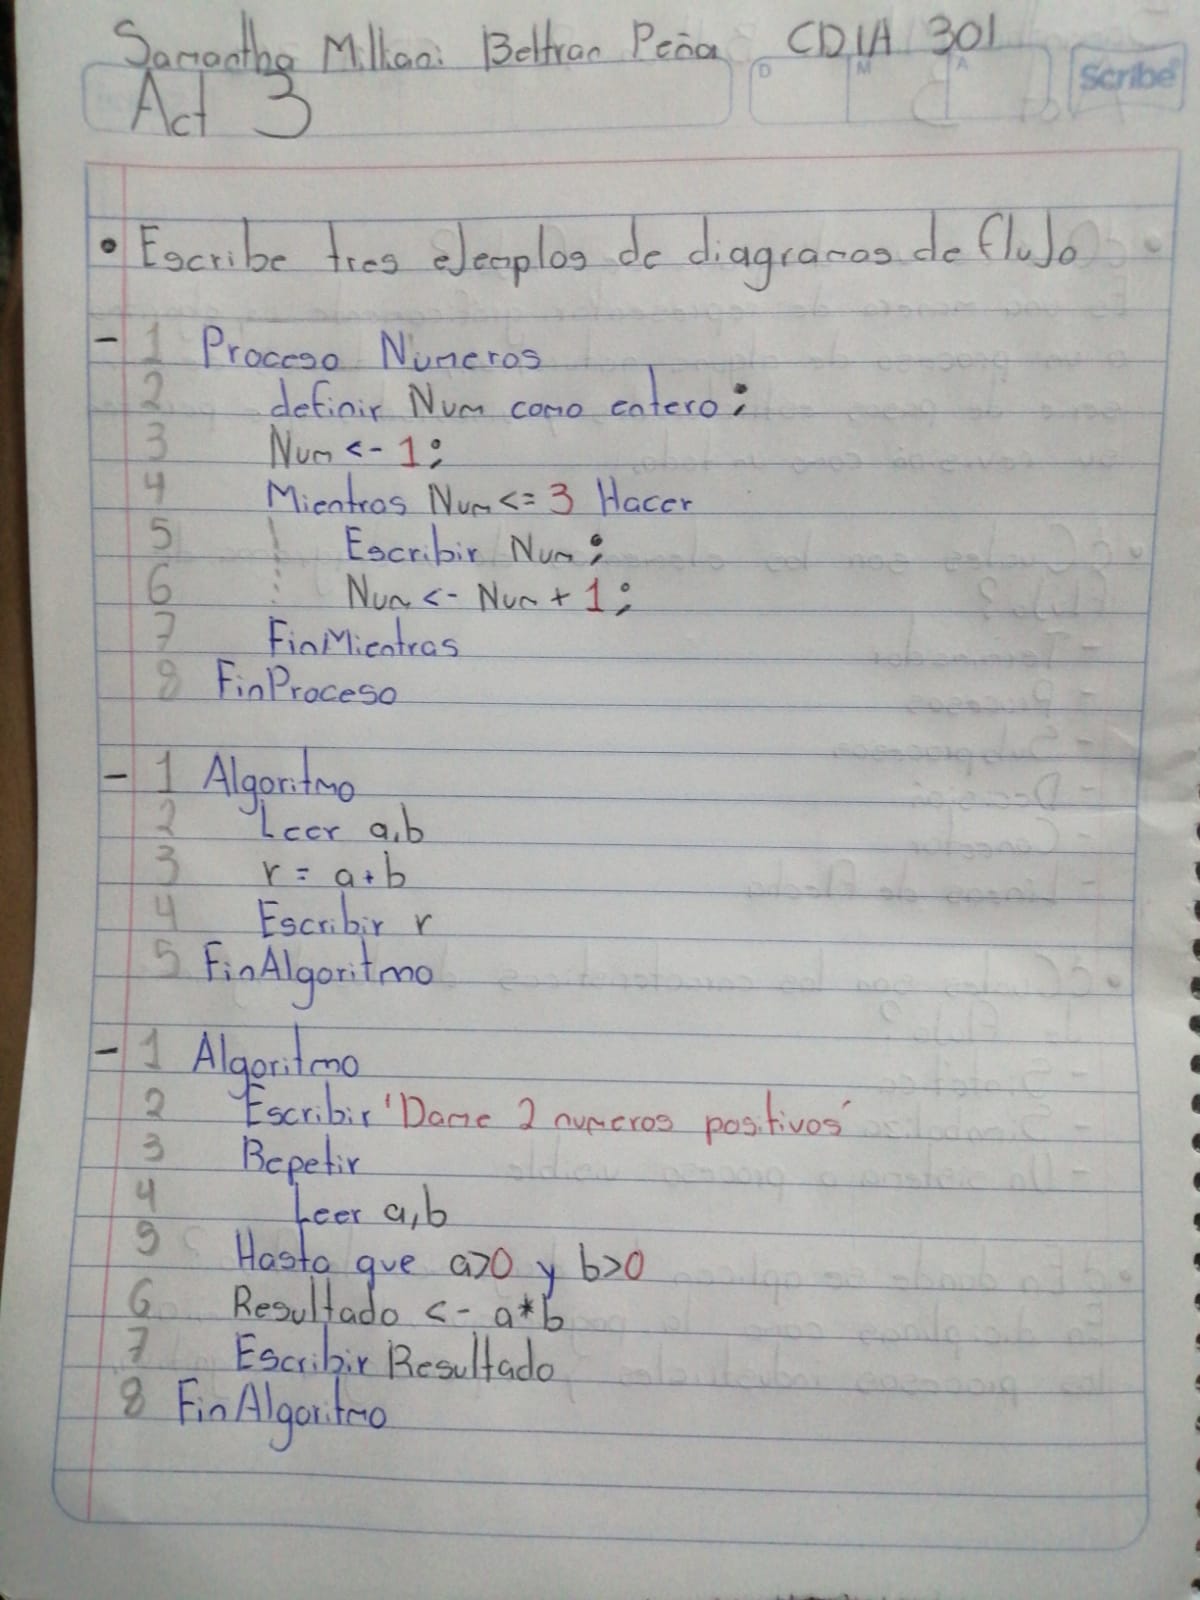 Samantha Millani Beltran Peña CDIA 301
D M A
Scribe
Act 3
• Escribe tres ejemplos de diagramas de flujo
- 1 Proceso Numeros
2 definir Num como entero;
3 Num <- 1;
4 Mientras Num <= 3 Hacer
5 Escribir Num;
6 Num <- Num + 1;
7 FinMientras
8 FinProceso
- 1 Algoritmo
2 Leer a,b
3 r = a+b
4 Escribir r
5 FinAlgoritmo
- 1 Algoritmo
2 Escribir 'Dame 2 numeros positivos'
3 Repetir
4 Leer a,b
5 Hasta que a>0 y b>0
6 Resultado <- a*b
7 Escribir Resultado
8 FinAlgoritmo